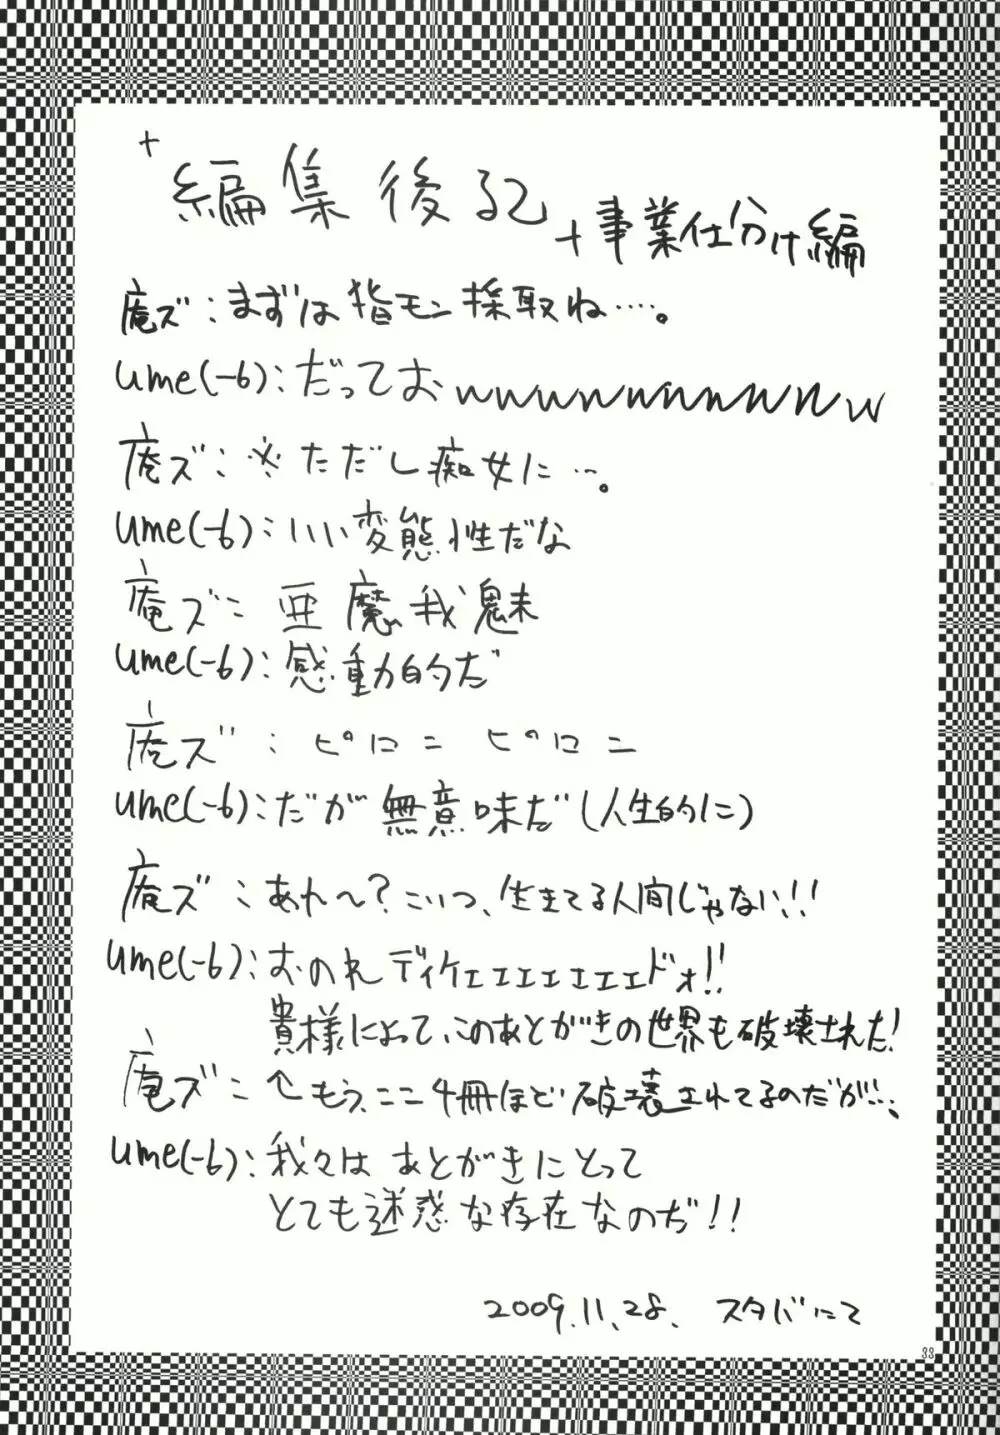 + 編集後記 + 事業仕分け編
庵ズ：まずは指モン採取ね……。
ume(-6)：だっておwwwwwwwwwww
庵ズ：※ただし痴女に…。
ume(-6)：いい変態性だな
庵ズ：亜魔我魅
ume(-6)：感動的だ
庵ズ：ピロニ ピロニ
ume(-6)：だが無意味だ(人生的に)
庵ズ：あれ〜？こいつ、生きてる人間じゃない!!
ume(-6)：おのれディケェェェェェェドォ!!
貴様によって、このあとがきの世界も破壊された!
庵ズ：↑もう、ここ4冊ほど破壊されてるのだが…、
ume(-6)：我々はあとがきにとって
とても迷惑な存在なのぢ!!
2009.11.28. スタバにて
33